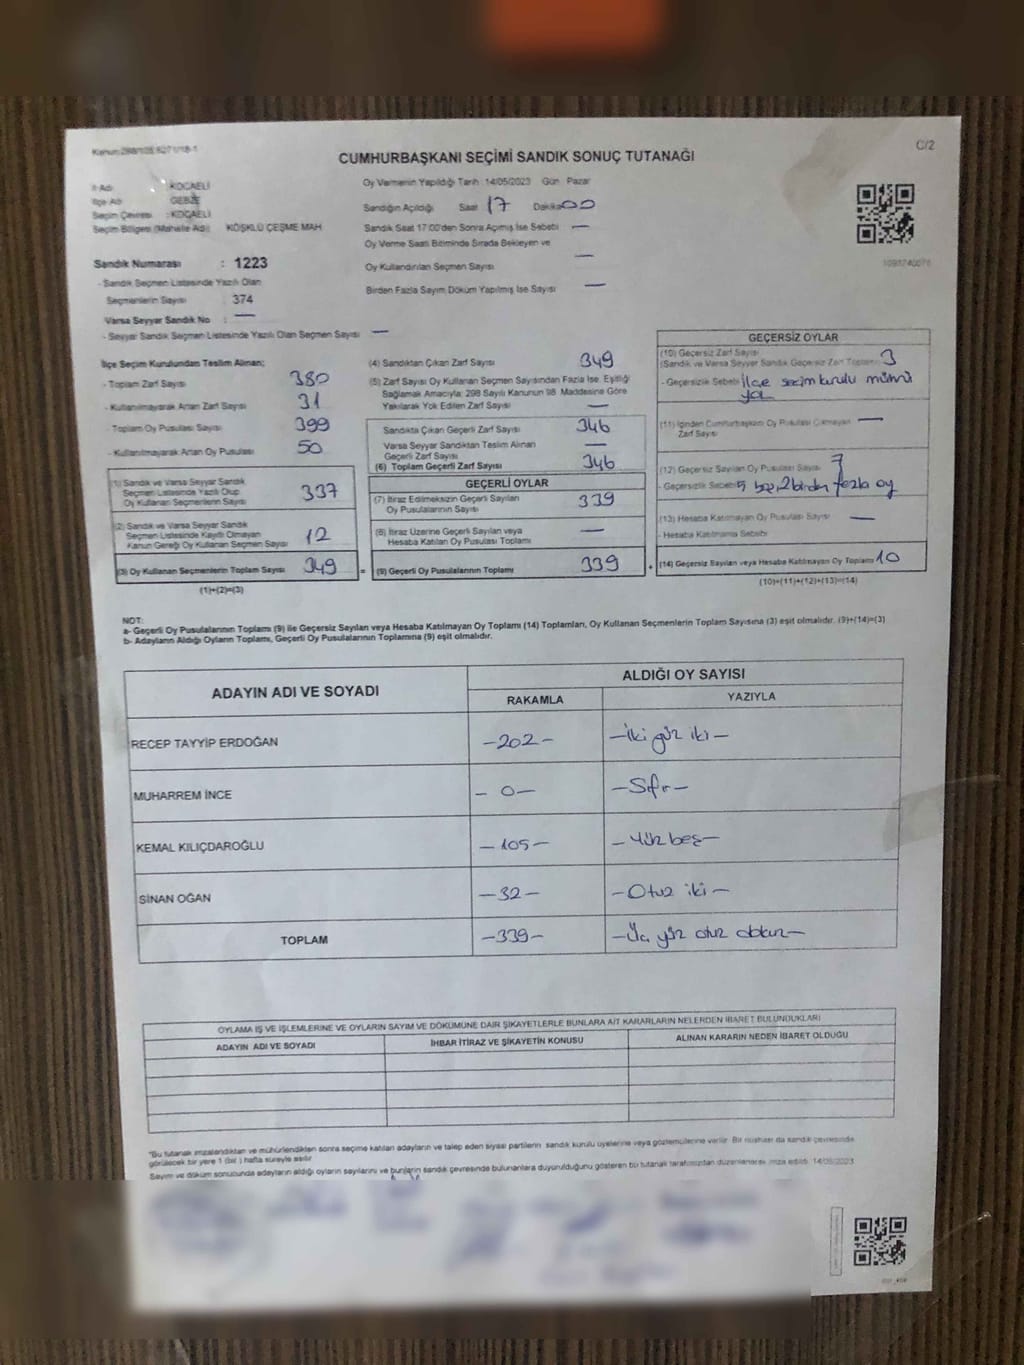 C/2
CUMHURBAŞKANI SEÇİMİ SANDIK SONUÇ TUTANAĞI
İl Adı : KOCAELİ
İlçe Adı : GEBZE
Seçim Çevresi : KOCAELİ
Seçim Bölgesi (Mahalle Adı) : KÖŞKLÜ ÇEŞME MAH
Sandık Numarası : 1223
- Sandık Seçmen Listesinde Yazılı Olan
Seçmenlerin Sayısı 374
Varsa Seyyar Sandık No : —
- Seyyar Sandık Seçmen Listesinde Yazılı Olan Seçmen Sayısı —
Oy Vermenin Yapıldığı Tarih 14/05/2023 Gün Pazar
Sandığın Açıldığı Saat 17 Dakika 00
Sandık Saat 17:00'den Sonra Açımış İse Sebebi —
Oy Verme Saati Bitiminde Sırada Bekleyen ve
Oy Kullandırılan Seçmen Sayısı —
Birden Fazla Sayım Döküm Yapılmış İse Sayısı —
İlçe Seçim Kurulundan Teslim Alınan;
- Toplam Zarf Sayısı 380
- Kullanılmayarak Artan Zarf Sayısı 31
- Toplam Oy Pusulası Sayısı 399
- Kullanılmayarak Artan Oy Pusulası 50
(1) Sandık ve Varsa Seyyar Sandık
Seçmen Listesinde Yazılı Olup
Oy Kullanan Seçmenlerin Sayısı 337
(2) Sandık ve Varsa Seyyar Sandık
Seçmen Listesinde Kayıtlı Olmayan
Kanun Gereği Oy Kullanan Seçmen Sayısı 12
(3) Oy Kullanan Seçmenlerin Toplam Sayısı 349
(1)+(2)=(3)
(4) Sandıktan Çıkan Zarf Sayısı 349
(5) Zarf Sayısı Oy Kullanan Seçmen Sayısından Fazla İse, Eşitliği
Sağlamak Amacıyla; 298 Sayılı Kanunun 98. Maddesine Göre
Yakılarak Yok Edilen Zarf Sayısı —
Sandıkta Çıkan Geçerli Zarf Sayısı 346
Varsa Seyyar Sandıktan Teslim Alınan
Geçerli Zarf Sayısı —
(6) Toplam Geçerli Zarf Sayısı 346
GEÇERLİ OYLAR
(7) İtiraz Edilmeksizin Geçerli Sayılan
Oy Pusulalarının Sayısı 339
(8) İtiraz Üzerine Geçerli Sayılan veya
Hesaba Katılan Oy Pusulası Toplamı —
= (9) Geçerli Oy Pusulalarının Toplamı 339 +
GEÇERSİZ OYLAR
(10) Geçersiz Zarf Sayısı
(Sandık ve Varsa Seyyar Sandık Geçersiz Zarf Toplamı) 3
- Geçersizlik Sebebi İlçe seçim kurulu mührü
yok
(11) İçinden Cumhurbaşkanı Oy Pusulası Çıkmayan
Zarf Sayısı —
(12) Geçersiz Sayılan Oy Pusulası Sayısı 7
- Geçersizlik Sebebi 5 boş, 2 birden fazla oy
(13) Hesaba Katılmayan Oy Pusulası Sayısı —
- Hesaba Katılmama Sebebi
(14) Geçersiz Sayılan veya Hesaba Katılmayan Oy Toplamı 10
(10)+(11)+(12)+(13)=(14)
NOT:
a- Geçerli Oy Pusulalarının Toplamı (9) ile Geçersiz Sayılan veya Hesaba Katılmayan Oy Toplamı (14) Toplamları, Oy Kullanan Seçmenlerin Toplam Sayısına (3) eşit olmalıdır. (9)+(14)=(3)
b- Adayların Aldığı Oyların Toplamı, Geçerli Oy Pusulalarının Toplamına (9) eşit olmalıdır.
ADAYIN ADI VE SOYADI
ALDIĞI OY SAYISI
RAKAMLA YAZIYLA
RECEP TAYYİP ERDOĞAN -202- -İki yüz iki-
MUHARREM İNCE -0- -Sıfır-
KEMAL KILIÇDAROĞLU -105- -Yüz beş-
SİNAN OĞAN -32- -Otuz iki-
TOPLAM -339- -Üç yüz otuz dokuz-
OYLAMA İŞ VE İŞLEMLERİNE VE OYLARIN SAYIM VE DÖKÜMÜNE DAİR ŞİKAYETLERLE BUNLARA AİT KARARLARIN NELERDEN İBARET BULUNDUKLARI
ADAYIN ADI VE SOYADI İHBAR İTİRAZ VE ŞİKAYETİN KONUSU ALINAN KARARIN NEDEN İBARET OLDUĞU
"Bu tutanak imzalandıktan ve mühürlendikten sonra seçime katılan adayların ve talep eden siyasi partilerin sandık kurulu üyelerine veya gözlemcilerine verilir. Bir nüshası da sandık çevresinde
görülecek bir yere 1 (bir) hafta süreyle asılır.
Sayım ve döküm sonucunda adayların aldığı oyların sayılarını ve bunların sandık çevresinde bulunanlara duyurulduğunu gösteren bu tutanak tarafımızdan düzenlenerek imza edildi. 14/05/2023